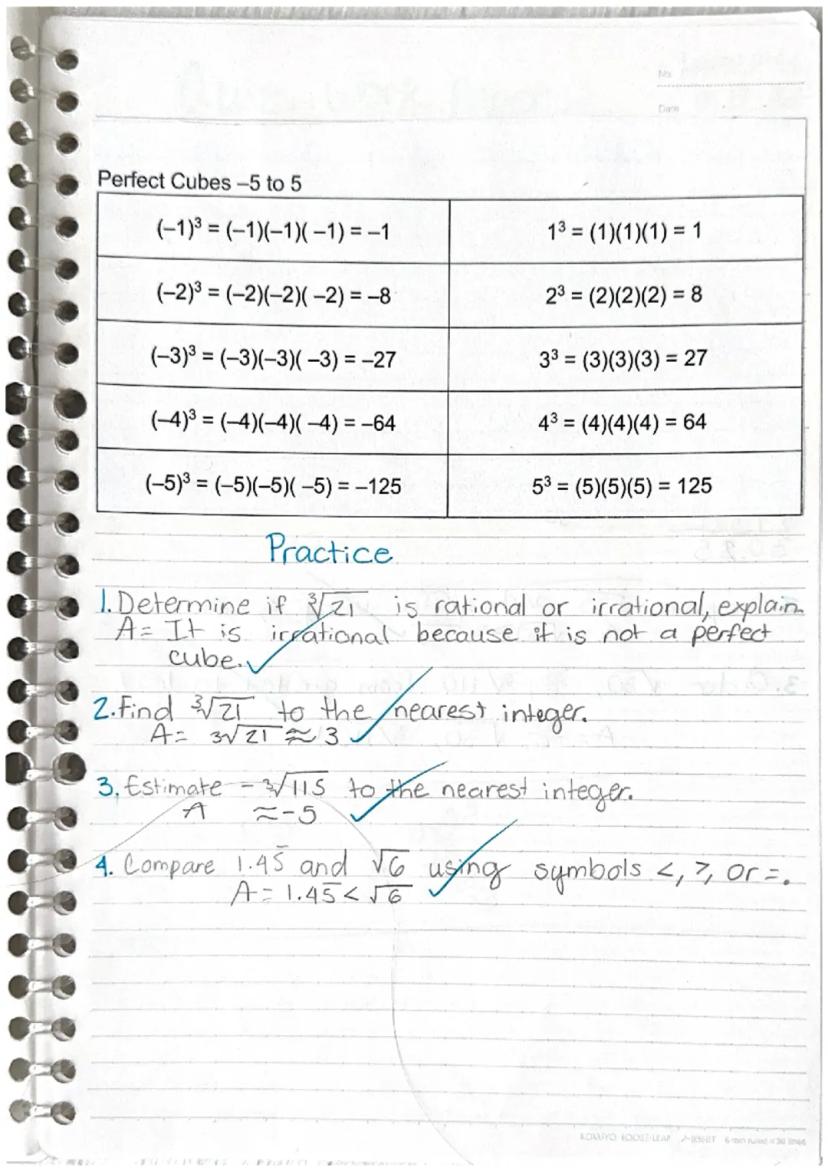 No.
Date
Perfect Cubes –5 to 5
(–1)³ = (–1)(–1)( –1) = –1 1³ = (1)(1)(1) = 1
(–2)³ = (–2)(–2)( –2) = –8 2³ = (2)(2)(2) = 8
(–3)³ = (–3)(–3)( –3) = –27 3³ = (3)(3)(3) = 27
(–4)³ = (–4)(–4)( –4) = –64 4³ = (4)(4)(4) = 64
(–5)³ = (–5)(–5)( –5) = –125 5³ = (5)(5)(5) = 125
Practice
1. Determine if ∛21 is rational or irrational, explain.
A= It is irrational because it is not a perfect
cube. ✓
2. Find ∛21 to the nearest integer.
A= 3√21 ≈ 3 ✓
3. Estimate -∛115 to the nearest integer.
A ≈ -5 ✓
4. Compare 1.45̅ and √6 using symbols <, >, or =.
A= 1.45̅ < √6 ✓